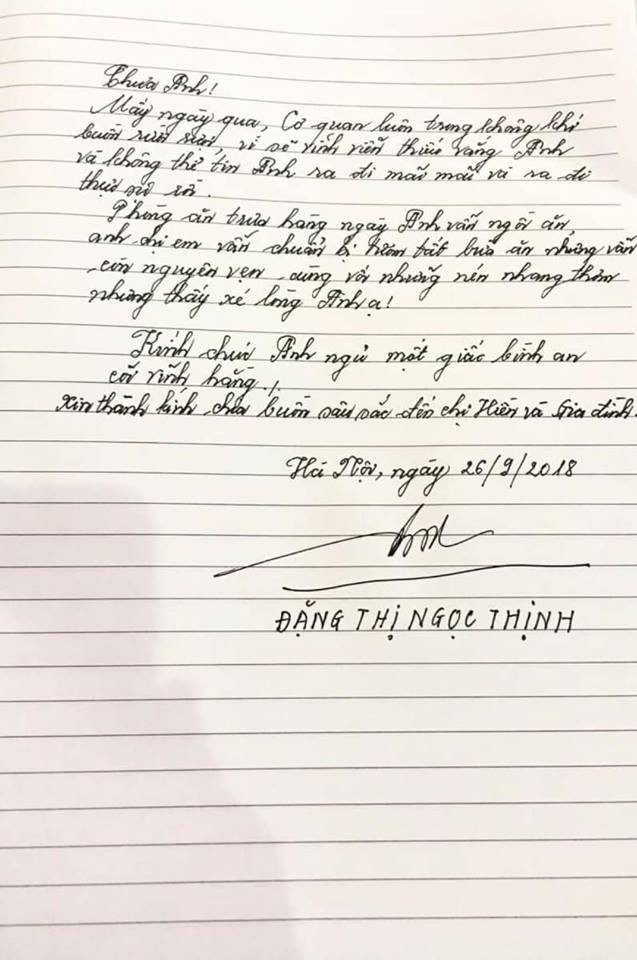 Thưa Anh!
Mấy ngày qua, Cơ quan luôn trong không khí
buồn rười rượi, vì sẽ vĩnh viễn thiếu vắng Anh
và không thể tin Anh ra đi mãi mãi và ra đi
thực sự rồi.
Phòng ăn trưa hàng ngày Anh vẫn ngồi ăn,
anh chị em vẫn chuẩn bị tươm tất bữa ăn nhưng vẫn
còn nguyên vẹn cùng với những nén nhang thơm
nhưng thấy xé lòng Anh ạ!
Kính chúc Anh ngủ một giấc bình an
cõi vĩnh hằng!.
Xin thành kính chia buồn sâu sắc đến chị Hiền và Gia đình.
Hà Nội, ngày 26/9/2018
ĐẶNG THỊ NGỌC THỊNH